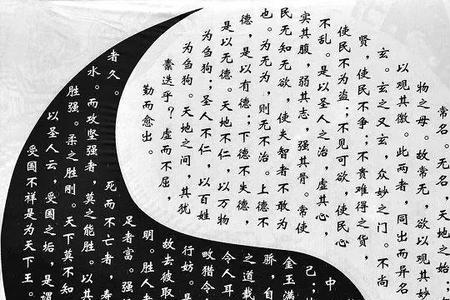 常名。无名，天地之始；
物之母。故常无，欲以观其妙
以观其徼。此两者，同出而异名
玄。玄之又玄，众妙之门。不尚
贤，使民不争；不贵难得之货，
使民不为盗；不见可欲，使民心
不乱。是以圣人之治，虚其心，
实其腹，弱其志，强其骨。常使
民无知无欲，使夫智者不敢为
也。为无为，则无不治。上德不
德，是以有德；下德不失德，
是以无德。天地不仁，以万物
为刍狗；圣人不仁，以百姓
为刍狗。天地之间，其犹
素迭乎？虚而不屈，
勤而愈出。
中
己；
金玉满
骄，自
之道载
令人耳
畋猎令
行妨。
故去彼取
明。胜人者
足者富。强
者久。死而不亡者
水。而攻坚强者，莫之能胜。以其
胜强。柔之胜刚。天下莫不知
以圣人云，受国之垢，是谓
受国不祥是为天下王